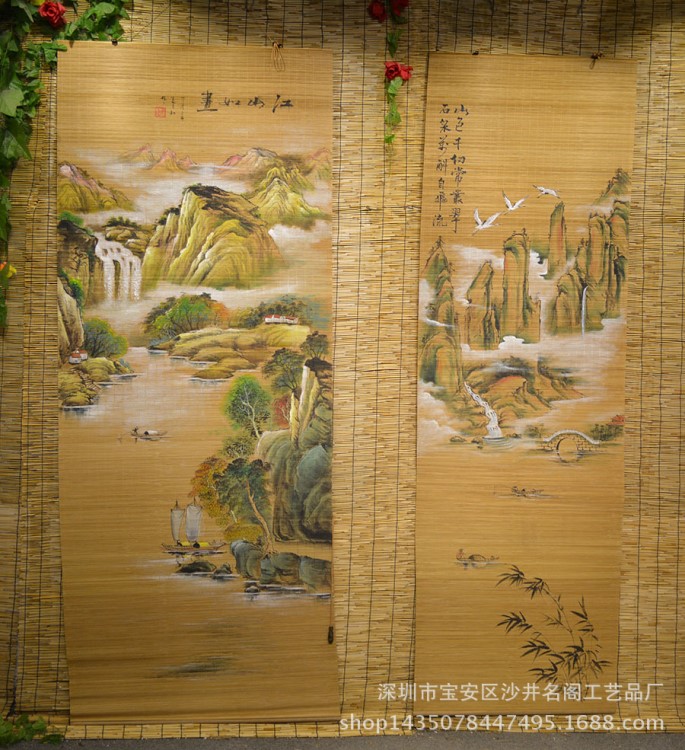 江山如畫
山色千仞常叢翠
石泉萬斛自飛流
深圳市宝安区沙井名阁工艺品厂
shop1435078447495.1688.com